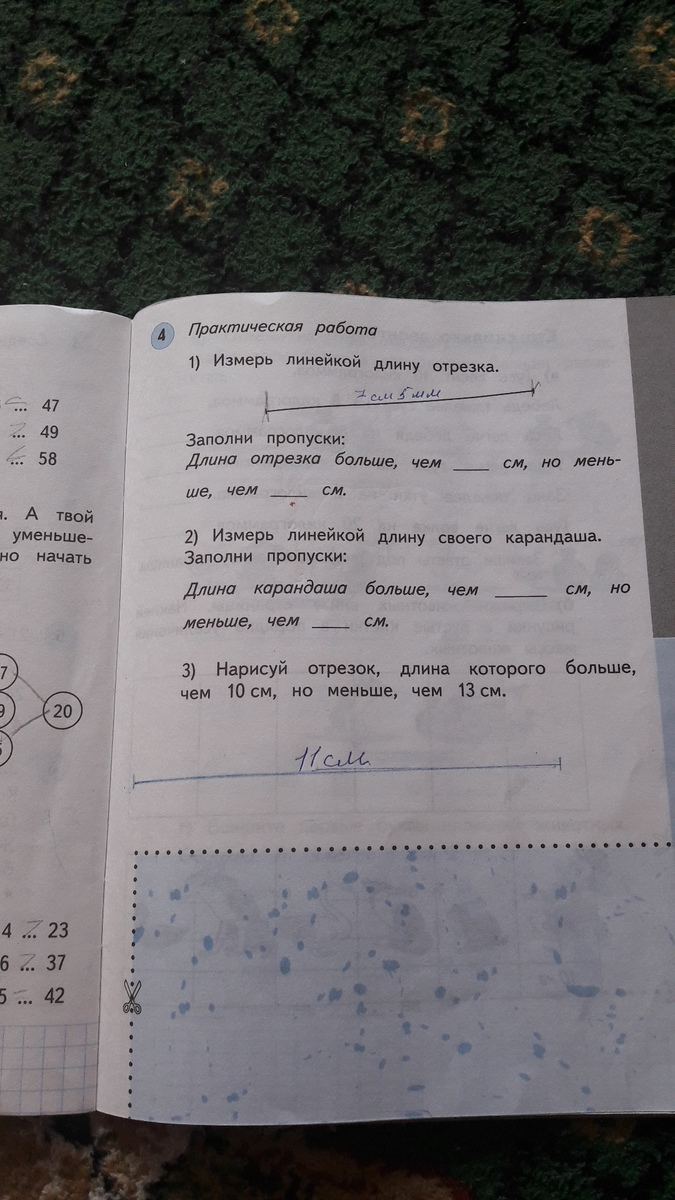 ... 47
... 49
... 58
я. А твой
уменьше-
но начать
7
9
20
5
4 ... 23
6 ... 37
5 ... 42
4 Практическая работа
1) Измерь линейкой длину отрезка.
7 см 5 мм
Заполни пропуски:
Длина отрезка больше, чем ____ см, но мень-
ше, чем ____ см.
2) Измерь линейкой длину своего карандаша.
Заполни пропуски:
Длина карандаша больше, чем _____ см, но
меньше, чем ____ см.
3) Нарисуй отрезок, длина которого больше,
чем 10 см, но меньше, чем 13 см.
11 см